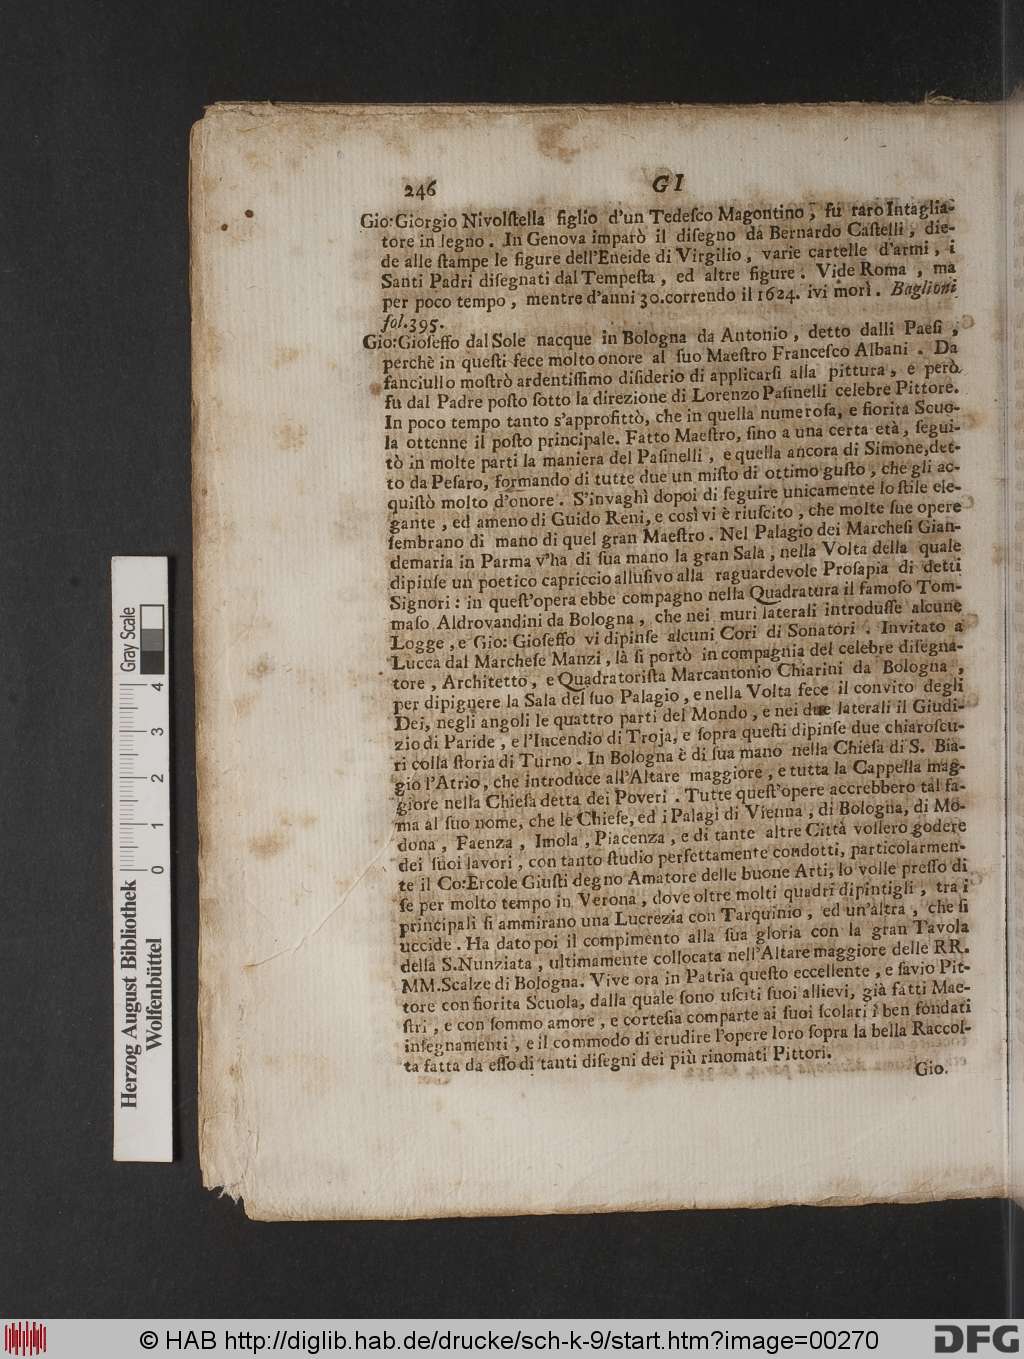 246 GI
Gio: Giorgio Nivolſtella figlio d'un Tedeſco Magontino, fu raro Intaglia-
tore in legno. In Genova imparò il diſegno da Bernardo Caſtelli, die-
de alle ſtampe le figure dell'Eneide di Virgilio, varie cartelle d'armi, i
Santi Padri diſegnati dal Tempeſta, ed altre figure. Vide Roma, ma
per poco tempo, mentre d'anni 30. correndo il 1624. ivi morì. Baglioni
fol. 395.
Gio: Gioſeffo dal Sole nacque in Bologna da Antonio, detto dalli Paeſi,
perchè in queſti fece molto onore al ſuo Maeſtro Franceſco Albani. Da
fanciullo moſtrò ardentiſſimo diſiderio di applicarſi alla pittura, e però
fu dal Padre poſto ſotto la direzione di Lorenzo Paſinelli celebre Pittore.
In poco tempo tanto s'approfittò, che in quella numeroſa, e fiorita Scuo-
la ottenne il poſto principale. Fatto Maeſtro, ſino a una certa età, ſegui-
tò in molte parti la maniera del Paſinelli, e quella ancora di Simone, det-
to da Peſaro, formando di tutte due un miſto di ottimo guſto, che gli ac-
quiſtò molto d'onore. S'invaghì dopoi di ſeguire unicamente lo ſtile ele-
gante, ed ameno di Guido Reni, e così vi è riuſcito, che molte ſue opere
ſembrano di mano di quel gran Maeſtro. Nel Palagio dei Marcheſi Gian-
demaria in Parma v'ha di ſua mano la gran Sala, nella Volta della quale
dipinſe un poetico capriccio alluſivo alla raguardevole Proſapia di detti
Signori: in queſt'opera ebbe compagno nella Quadratura il famoſo Tom-
maſo Aldrovandini da Bologna, che nei muri laterali introduſſe alcune
Logge, e Gio: Gioſeffo vi dipinſe alcuni Cori di Sonatori. Invitato a
Lucca dal Marcheſe Manzi, là ſi portò in compagnia del celebre diſegna-
tore, Architetto, e Quadratoriſta Marcantonio Chiarini da Bologna,
per dipignere la Sala del ſuo Palagio, e nella Volta fece il convito degli
Dei, negli angoli le quattro parti del Mondo, e nei due laterali il Giudi-
zio di Paride, e l'Incendio di Troja, e ſopra queſti dipinſe due chiaroſcu-
ri colla ſtoria di Turno. In Bologna è di ſua mano nella Chieſa di S. Bia-
gio l'Atrio, che introduce all'Altare maggiore, e tutta la Cappella mag-
giore nella Chieſa detta dei Poveri. Tutte queſt'opere accrebbero tal fa-
ma al ſuo nome, che le Chieſe, ed i Palagi di Vienna, di Bologna, di Mo-
dona, Faenza, Imola, Piacenza, e di tante altre Città vollero godere
dei ſuoi lavori, con tanto ſtudio perfettamente condotti, particolarmen-
te il Co: Ercole Giuſti degno Amatore delle buone Arti, lo volle preſſo di
ſe per molto tempo in Verona, dove oltre molti quadri dipintigli, tra i
principali ſi ammirano una Lucrezia con Tarquinio, ed un'altra, che ſi
uccide. Ha dato poi il compimento alla ſua gloria con la gran Tavola
della S. Nunziata, ultimamente collocata nell'Altare maggiore delle RR.
MM. Scalze di Bologna. Vive ora in Patria queſto eccellente, e ſavio Pit-
tore con fiorita Scuola, dalla quale ſono uſciti ſuoi allievi, già fatti Mae-
ſtri, e con ſommo amore, e corteſia comparte ai ſuoi ſcolari i ben fondati
inſegnamenti, e il commodo di erudire l'opere loro ſopra la bella Raccol-
ta fatta da eſſo di tanti diſegni dei più rinomati Pittori.
Gio.
Gray Scale
0 1 2 3 4
Herzog August Bibliothek
Wolfenbüttel
© HAB http://diglib.hab.de/drucke/sch-k-9/start.htm?image=00270
DFG